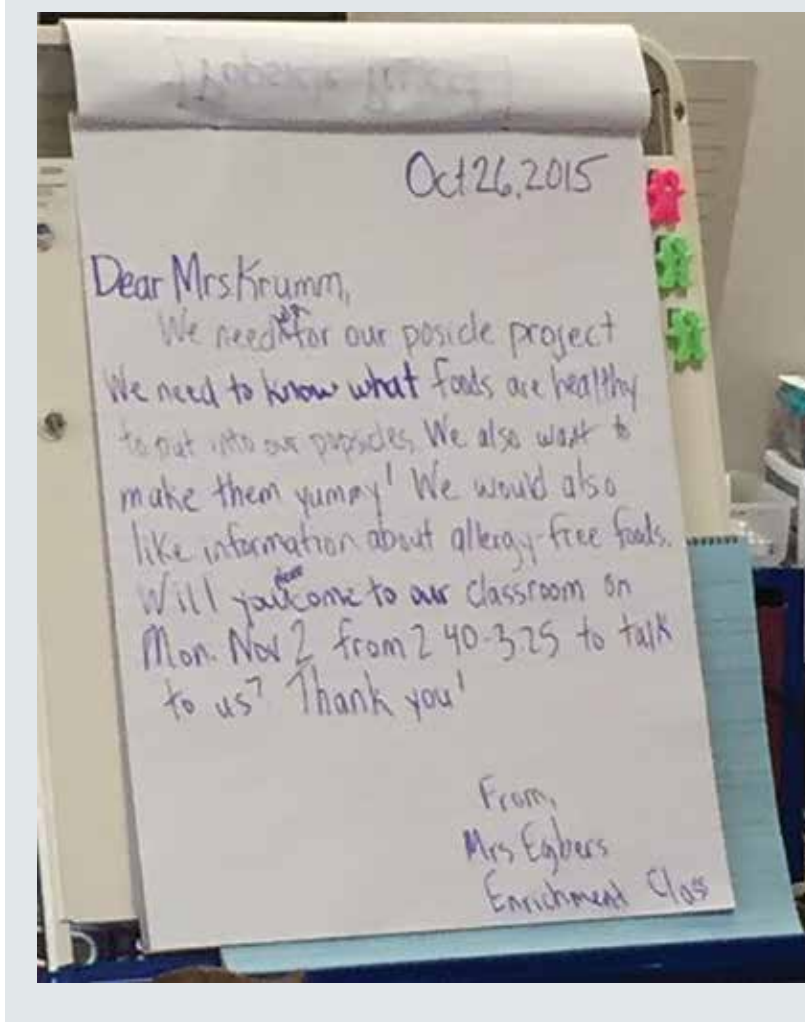 Oct 26, 2015
Dear Mrs Krumm,
We need for our posicle project
We need to know what foods are healthy
to put into our popsicles. We also want to
make them yummy! We would also
like information about allergy-free foods.
Will you come to our classroom on
Mon. Nov 2 from 2 40-3:25 to talk
to us? Thank you!
From,
Mrs Egbers
Enrichment Class